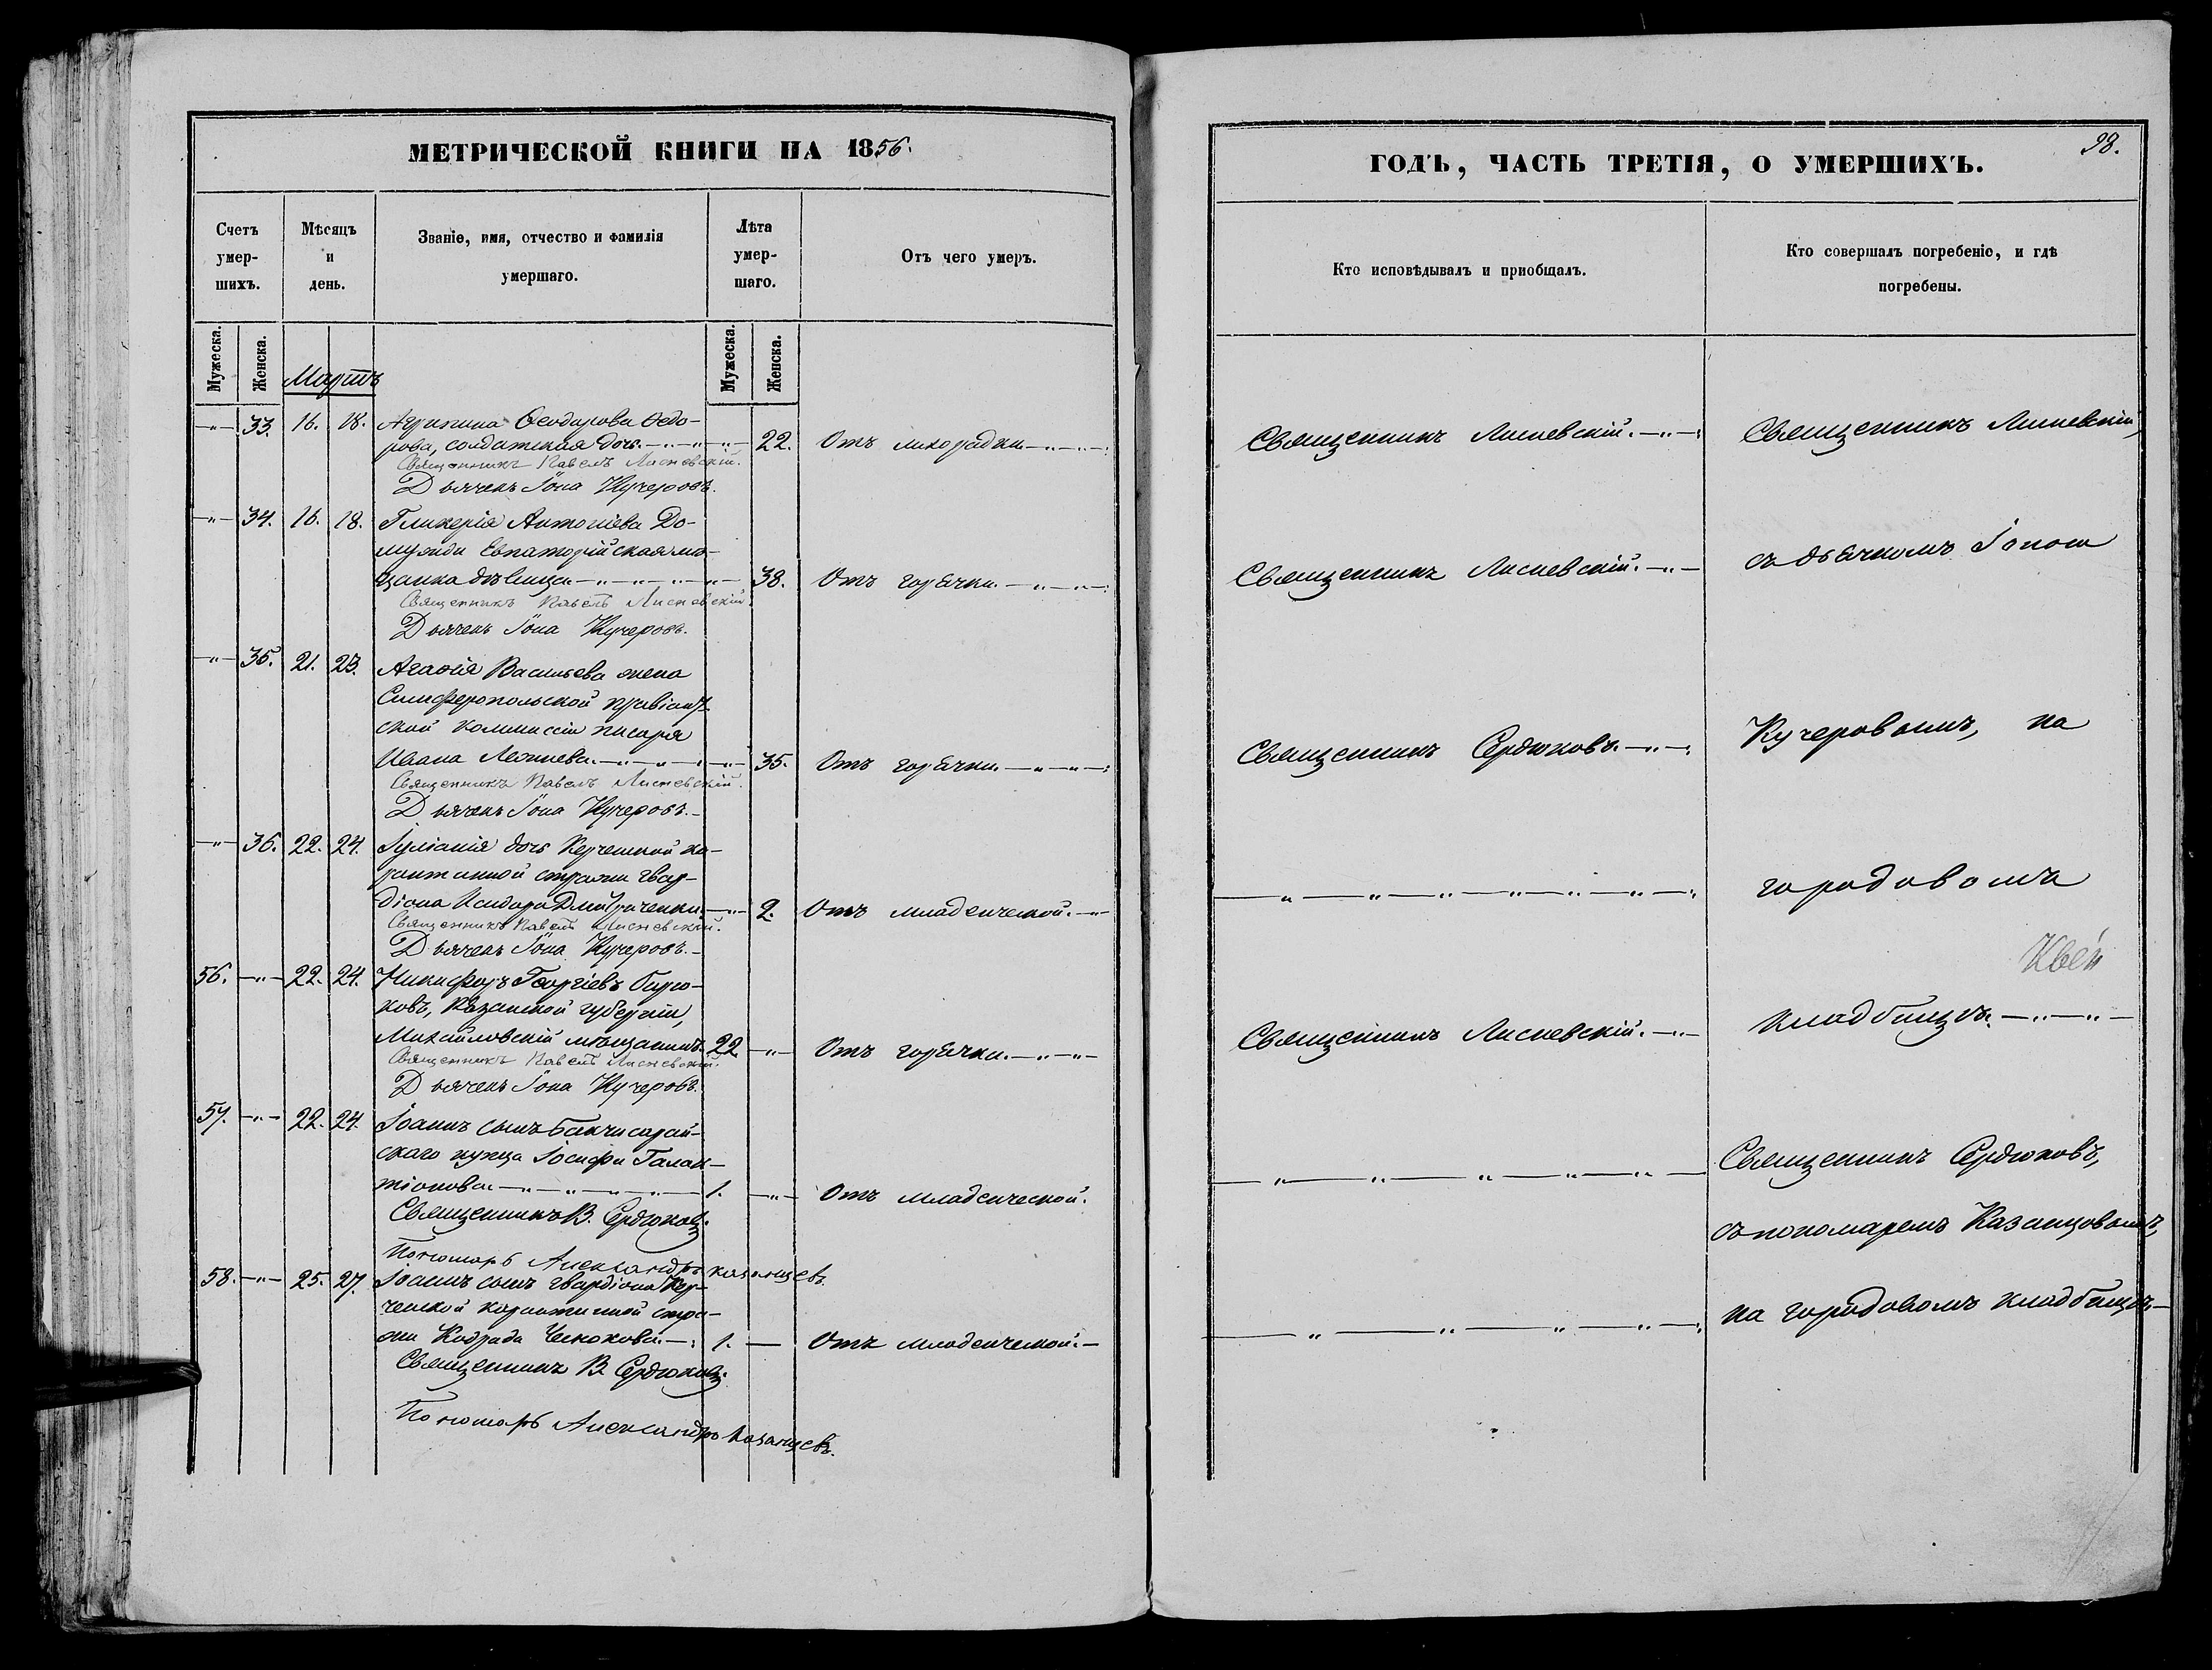 МЕТРИЧЕСКОЙ КНИГИ НА 1856.
Счетъ умер-шихъ.
Мѣсяцъ и день.
Званіе, имя, отчество и фамилія умершаго.
Лѣта умер-шаго.
Отъ чего умеръ.
Мужеска.
Женска.
Мартъ
Мужеска.
Женска.
-"- 33. 16. 18. Агрипина Ѳеодорова Ѳедо-
рова, солдатская дочь -"-"-"- 22. Отъ лихорадки -"-"-
Священникъ Павелъ Лисневскій.
Дьячекъ Іона Кучеровъ.
-"- 34. 16. 18. Гликерія Антоніева До-
Евпаторійская мѣ-
щанка дѣвица -"-"-"- 38. Отъ горячки -"-"-
Священникъ Павелъ Лисневскій.
Дьячекъ Іона Кучеровъ.
-"- 35. 21. 23. Агаѳія Васильева жена
Симферопольской провіант-
ской коммиссіи писаря
Ивана -"-"-"- 35. Отъ горячки -"-"-
Священникъ Павелъ Лисневскій.
Дьячекъ Іона Кучеровъ.
-"- 36. 22. 24. Іуліанія дочь Керченской ка-
рантинной стражи гвар-
діона Исидора Дмитриченки -"- 2. Отъ младенческой -"-
Священникъ Павелъ Лисневскій.
Дьячекъ Іона Кучеровъ.
56. -"- 22. 24. Никифоръ Георгіевъ Бирю-
ковъ, Казанской губерніи,
Михайловскій мѣщанинъ. 22. -"- Отъ горячки -"-"-
Священникъ Павелъ Лисневскій.
Дьячекъ Іона Кучеровъ.
57. -"- 22. 24. Іоаннъ сынъ Бахчисарай-
скаго купца Іосифа Галак-
тіонова -"-"-"- 1. -"- Отъ младенческой.
Священникъ В. Сердюковъ.
Пономарь Александръ Казанцевъ.
58. -"- 25. 27. Іоаннъ сынъ гвардіона Кер-
ченской карантинной стра-
жи Кодрада Чеснокова - 1. - Отъ младенческой -
Священникъ В. Сердюковъ.
Пономарь Александръ Казанцевъ.
98.
ГОДЪ, ЧАСТЬ ТРЕТІЯ, О УМЕРШИХЪ.
Кто исповѣдывалъ и приобщалъ.
Кто совершалъ погребеніе, и гдѣ погребены.
Священникъ Лисневскій -"- Священникъ Лисневскій,
Священникъ Лисневскій -"- съ дьячкомъ Іоною
Священникъ Сердюковъ -"- Кучеровымъ, на
-"-"-"-"-"-"- городовомъ
Священникъ Лисневскій -"- кладбищѣ -"-"-
-"-"-"-"-"- Священникъ Сердюковъ,
съ пономаремъ Казанцовымъ,
-"-"-"-"- на городовомъ кладбищѣ -